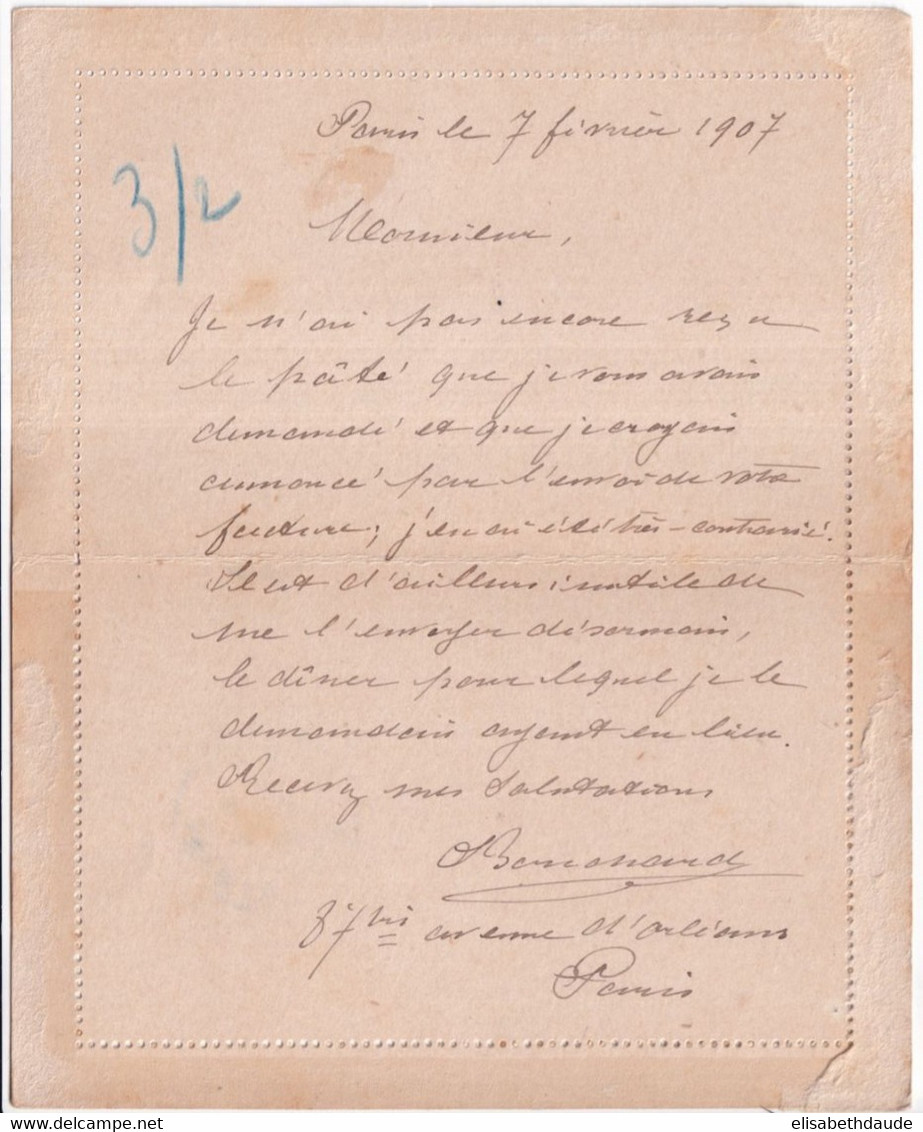 Paris le 7 février 1907
3/2
Monsieur,
Je n'ai pas encore reçu
le pâté que je vous avais
demandé et que je croyais
annoncé par l'envoi de votre
facture; j'en ai été très-contrarié.
Il est d'ailleurs inutile de
me l'envoyer désormais,
le dîner pour lequel je le
demandais ayant eu lieu.
Recevez mes Salutations
87 bis avenue d'Orléans
Paris
elisabethdaude